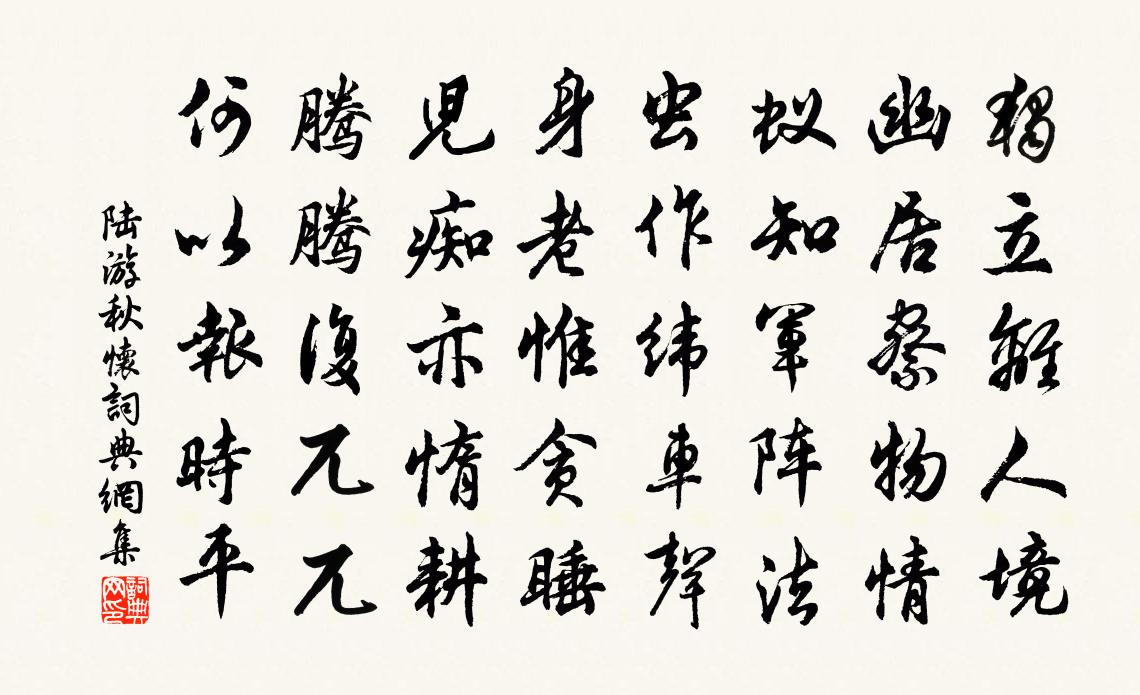 獨立離人境
幽居察物情
蚁知軍阵法
虫作緯車聲
身老惟贪睡
児痴亦惰耕
騰騰復兀兀
何以報時平
陆游秋懷詞典網集
詞典网印